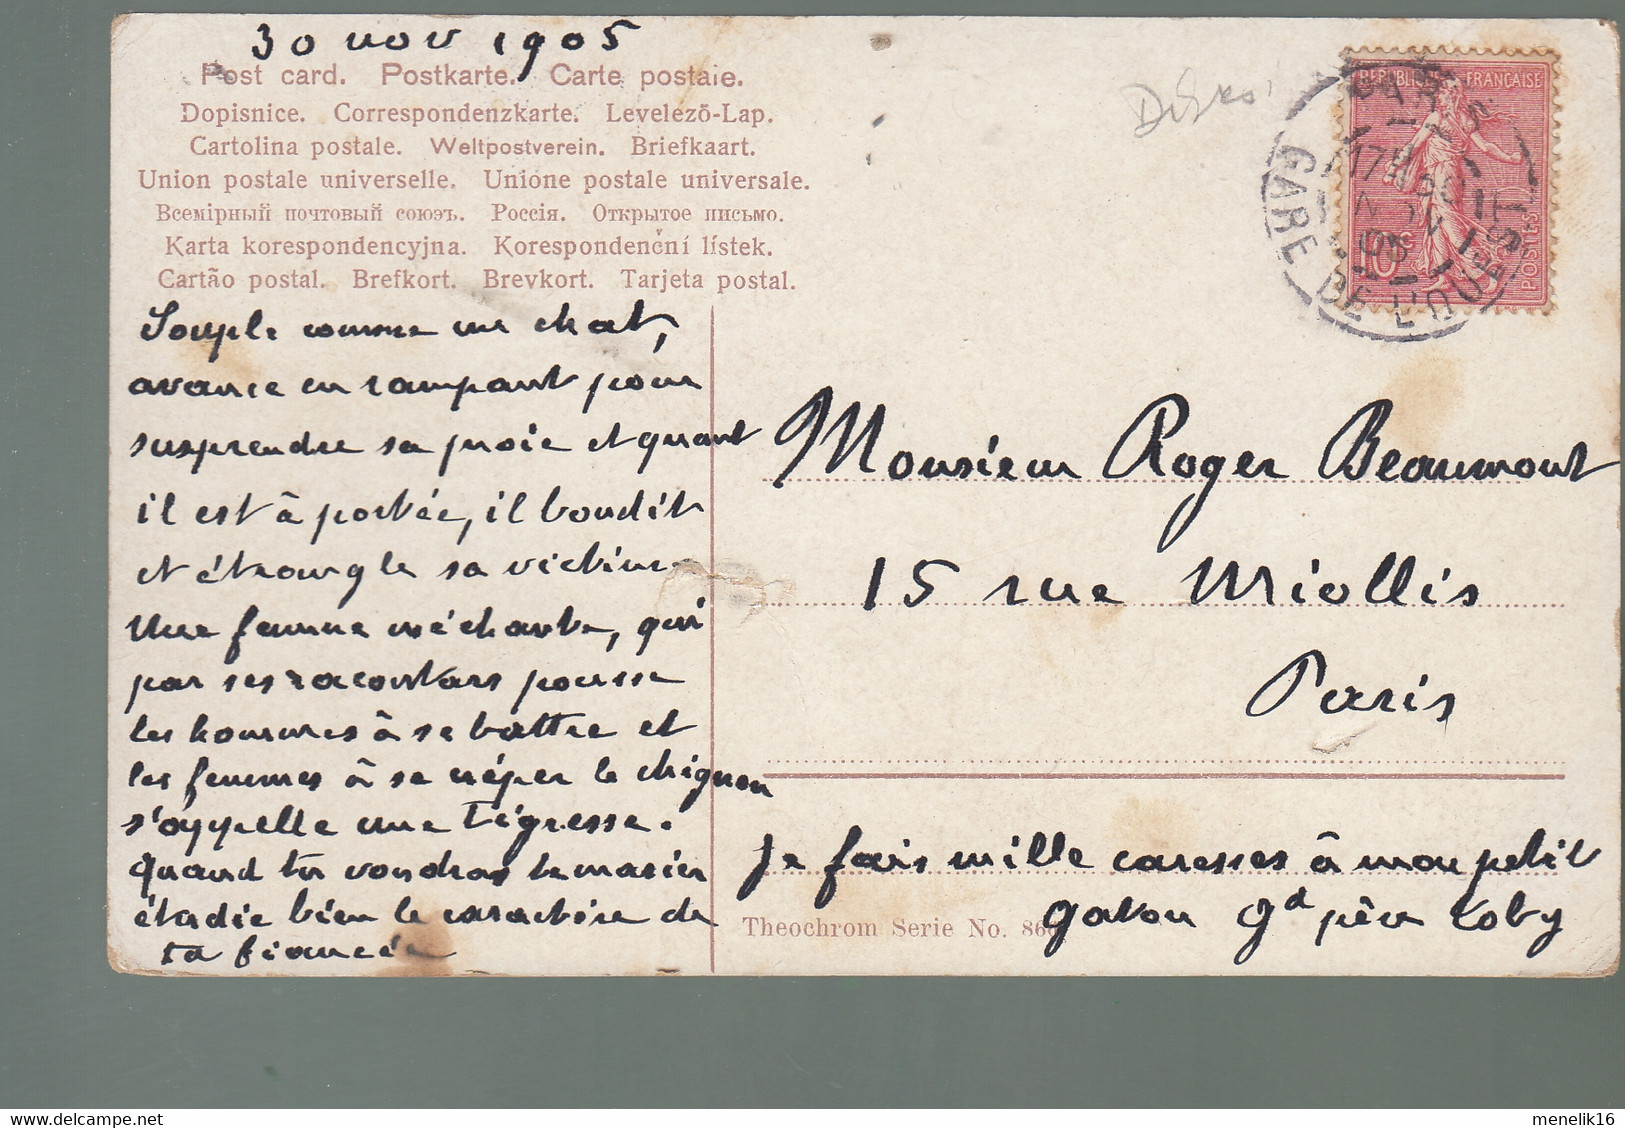 30 nov 1905
Post card. Postkarte. Carte postale.
Dopisnice. Correspondenzkarte. Levelezõ-Lap.
Cartolina postale. Weltpostverein. Briefkaart.
Union postale universelle. Unione postale universale.
Всемірный почтовый союзъ. Россія. Открытое письмо.
Karta korespondencyjna. Korespondenční lístek.
Cartão postal. Brefkort. Brevkort. Tarjeta postal.
REPUBLIQUE FRANÇAISE
10c
POSTES
PARIS
17H
30
NOV
05
GARE DE L'OUEST
Souple comme un chat,
avance en rampant pour
susprendre sa proie et quant
il est à portée, il bondit
et étrangle sa victime
Une femme méchante, qui
par ses racontars pousse
les hommes à se battre et
les femmes à se crêper le chignon
s'appelle une tigresse.
Quand tu voudras te marier
étudie bien le caractère de
ta fiancée
Monsieur Roger Beaumont
15 rue Miollis
Paris
Je fais mille caresses à mon petit
gaton gd père Toby
Theochrom Serie No. 86
menelik16